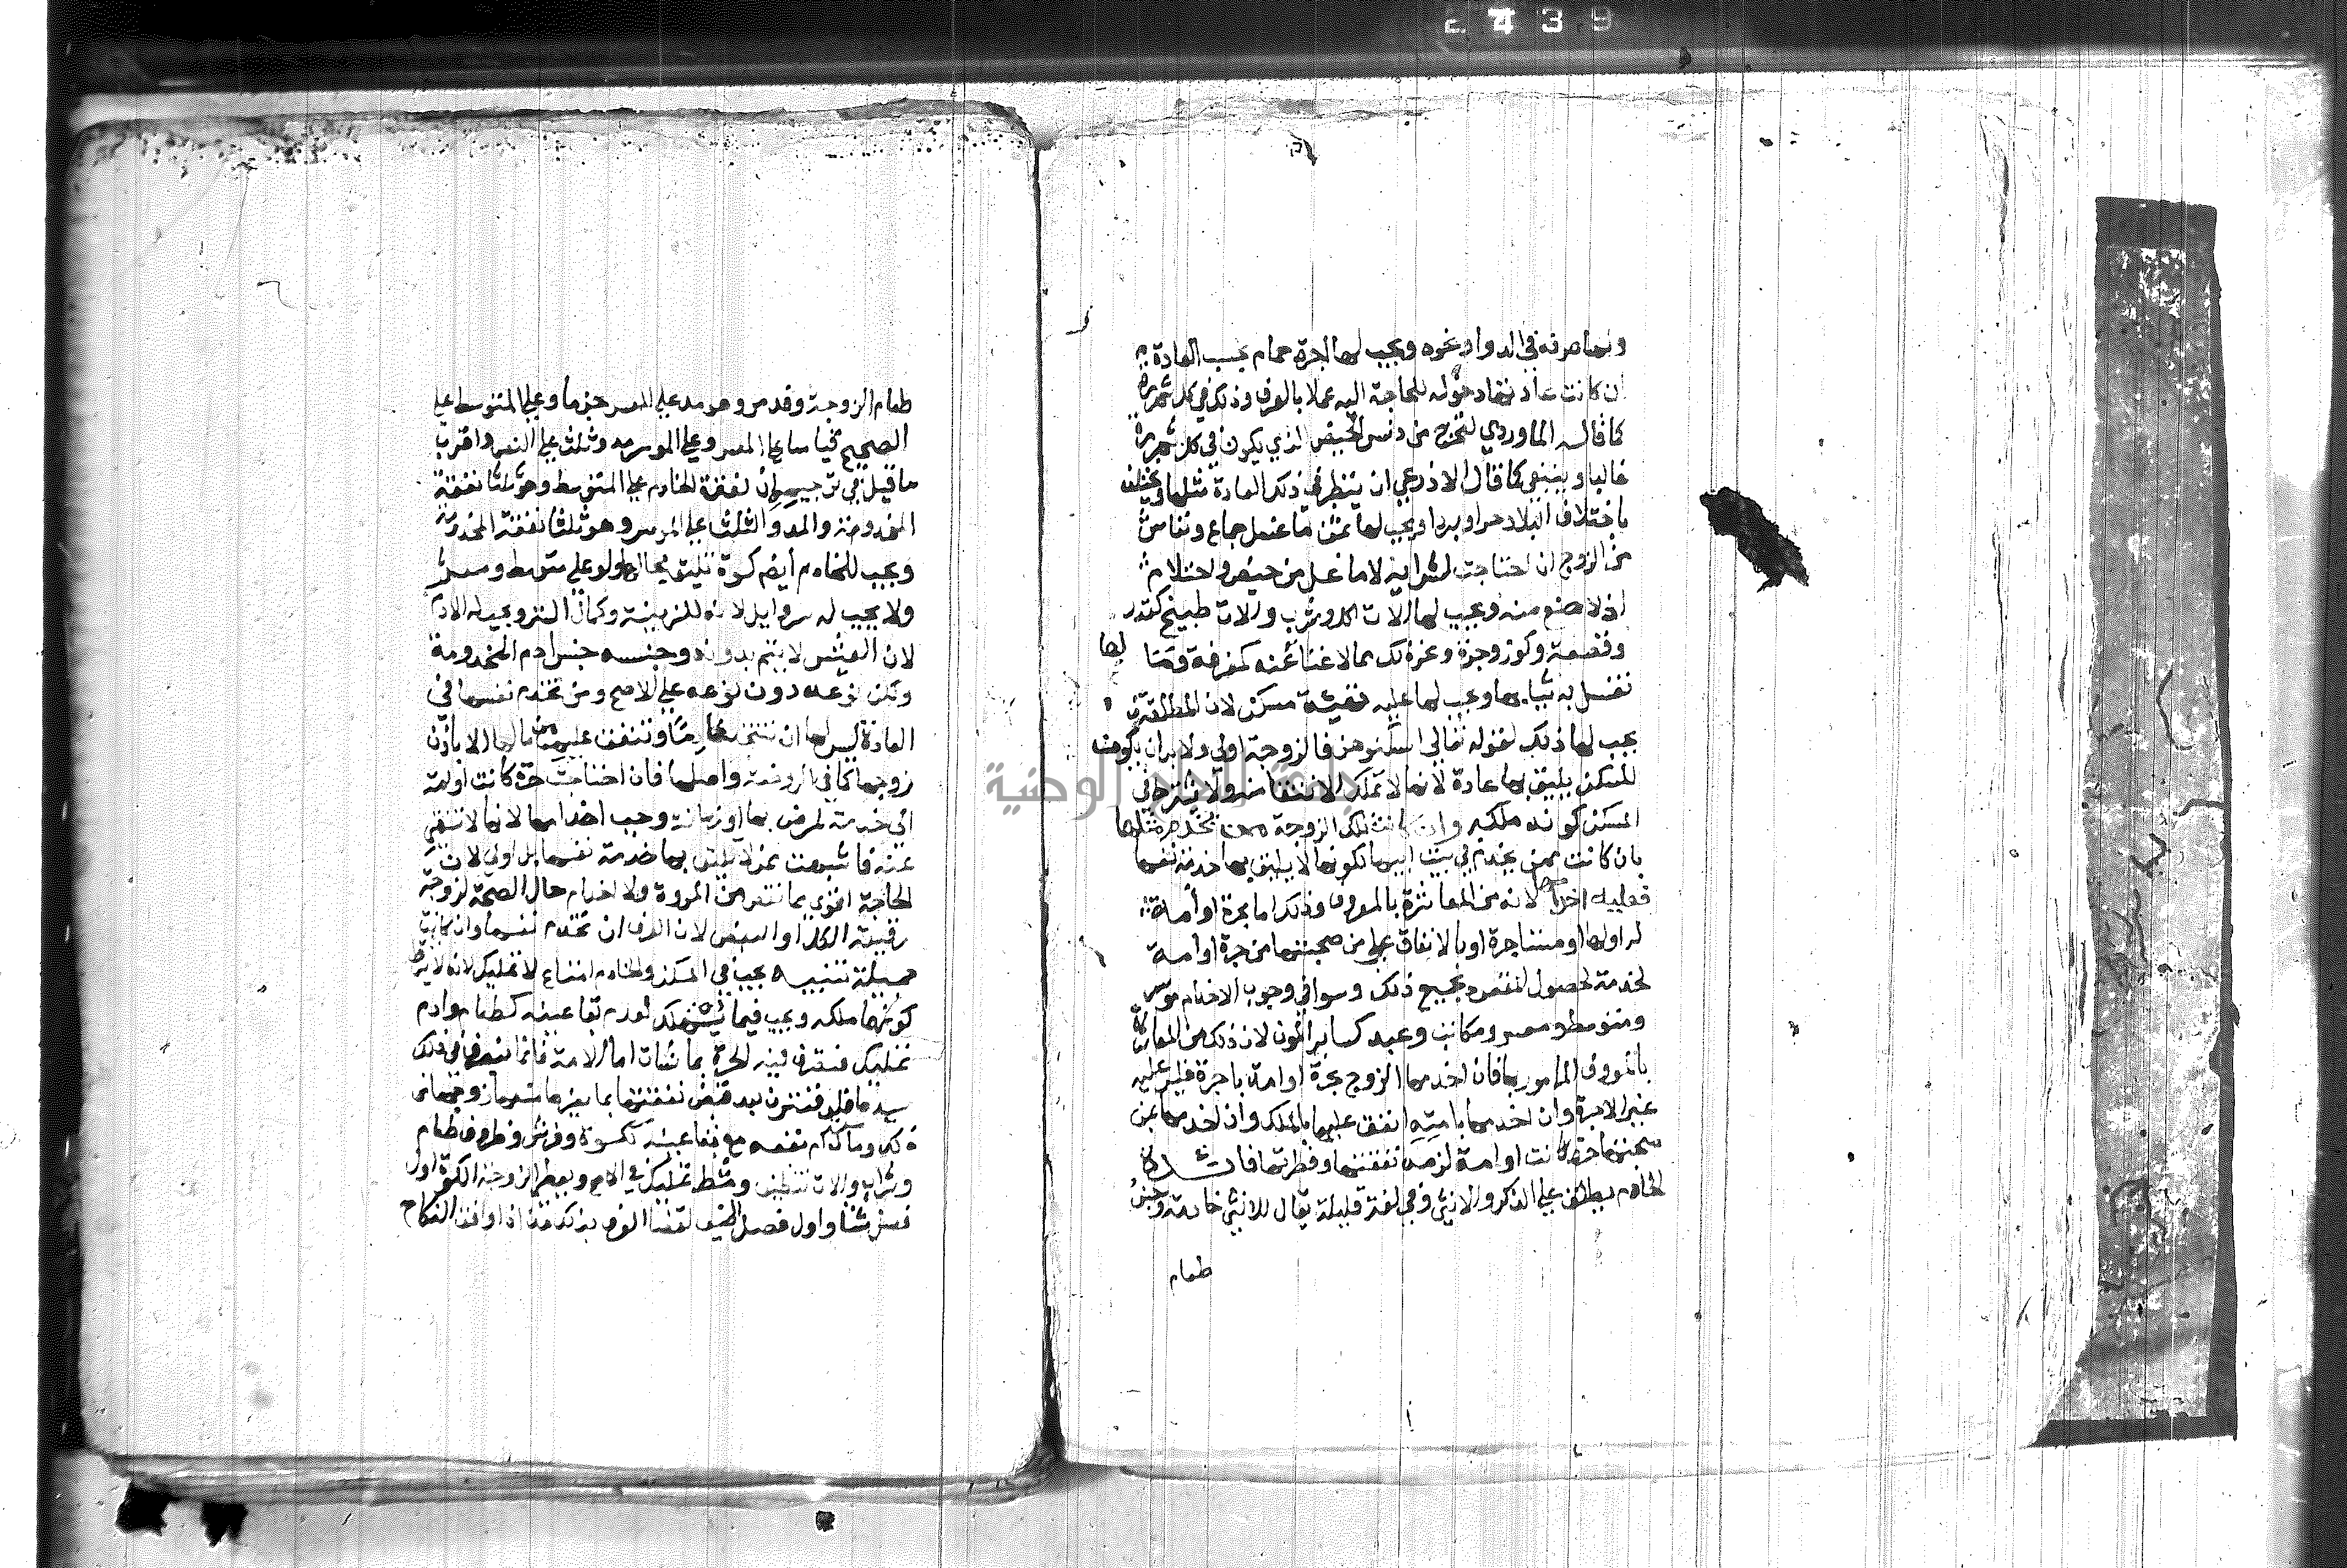 ونحا صرفه في الدوا ونحوه ويجب لها اجرة حمام بحسب العادة
ان كانت عادتها دخوله للحاجة اليه عملا بالعرف وذلك في كل شهر مرة
كما قال الماوردي لتخرج من دنس الحيض الذي يكون في كل شهر مرة
غالبا وينبغي كما قال الاذرعي ان ينظر في ذلك لعادة مثلها ويختلف
باختلاف البلاد حرا وبردا ويجب لها ثمن ما غسل جماع ونفاس
من الزوج ان احتاجت لشرايه لا ما غسل من حيض واحتلام
اذ لا صنع منه ويجب لها الات اكل وشرب والات طبيخ كقدر
وقصعة وكوز وجرة ونحو ذلك مما لا غنا عنه كمغرفة وما
تغسل به ثيابها ويجب لها عليه تهيئة مسكن لان المطلقة
يجب لها ذلك لقوله تعالى اسكنوهن فالزوجة اولى ولا بد ان يكون
المسكن يليق بها عادة لانها لا تملك الانتقال منه ولا يشترط في
المسكن كونه ملكه وان كانت تلك الزوجة ممن تخدم مثلها
بان كانت ممن يخدم في بيت ابيها لكونها لا يليق بها خدمة نفسها
فعليه اخدامها لانه من المعاشرة بالمعروف وذلك اما بحرة او امة
له او لها او مستاجرة او بالانفاق على من صحبتها من حرة او امة
لخدمة لحصول المقصود بجميع ذلك وسوا في وجوب الاخدام موسر
ومتوسط ومعسر ومكاتب وعبد كساير المون لان ذلك من المعاشرة
بالمعروف المامور بها فان اخدمها الزوج بحرة او امة باجرة فليس عليه
غير الاجرة وان اخدمها بامته انفق عليها بالملك وان اخدمها بمن
صحبتها حرة كانت او امة لزمه نفقتها وفطرتها فائدة
الخادم يطلق على الذكر والانثى وفي لغة قليلة يقال للانثى خادمة وجنس
طعام
طعام الزوجة وقد مر وهو مد على المعسر جزما وعلى المتوسط على
الصحيح قياسا على المعسر وعلى الموسر مد وثلث على النص واقرب
ما قيل في توجيهه ان نفقة الخادم على المتوسط وهو ثلثا نفقة
المخدومة والمد والثلث على الموسر وهو ثلثا نفقة المخدومة
ويجب للخادم أيضا كسوة تليق بحاله ولو على متوسط ومعسر
ولا يجب له سراويل لانه للزينة وكمال الستر ويجب له الادم
لان العيش لا يتم بدونه وجنسه جنس ادم المخدومة
ولكن نوعه دون نوعه على الاصح ومن تخدم نفسها في
العادة ليس لها ان تتخذ خادما وتنفق عليه من مالها الا باذن
زوجها كما في الروضة واصلها فان احتاجت حرة كانت او امة
الى خدمة لمرض بها او زمانة وجب اخدامها لانها لا تستغني
عنه فاشبهت بمن لا يليق بها خدمة نفسها بل اولى لان
الحاجة اقوى مما نقص من المروة ولا اخدام حال الصحة لزوجة
رقيقة الكل او البعض لان العرف ان تخدم نفسها وان كانت
جميلة تنبيه يجب في المسكن والخادم امتاع لا تمليك لانه لا يشترط
كونهما ملكه ويجب فيما يستهلك لعدم بقا عينه كطعام وادم
تمليك فتتصرف فيه الحرة بما شات اما الامة فانما يتصرف في ذلك
سيدها فلو قترت بعد قبض نفقتها بما يضرها منعها زوجها من
ذلك وما دام نفعه مع بقا عينه ككسوة وفرش وظروف طعام
وشراب والات تنظيف ومشط تمليك في الاصح ويعطي الزوجة الكسوة اول
فصل شتا واول فصل الصيف لقضا العرف بذلك هذا اذا وافق النكاح